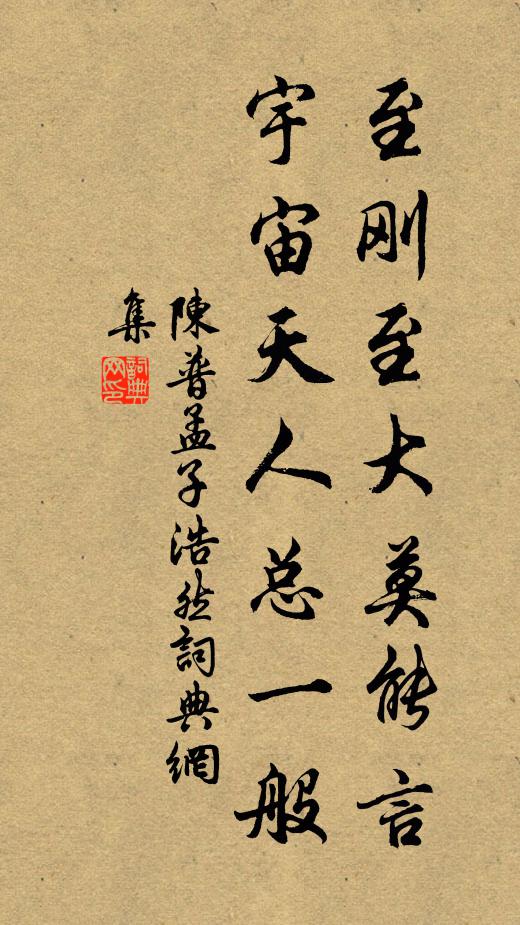 至刚至大莫能言
宇宙天人总一般
陳普孟子浩然詞典網
集
詞典
网印